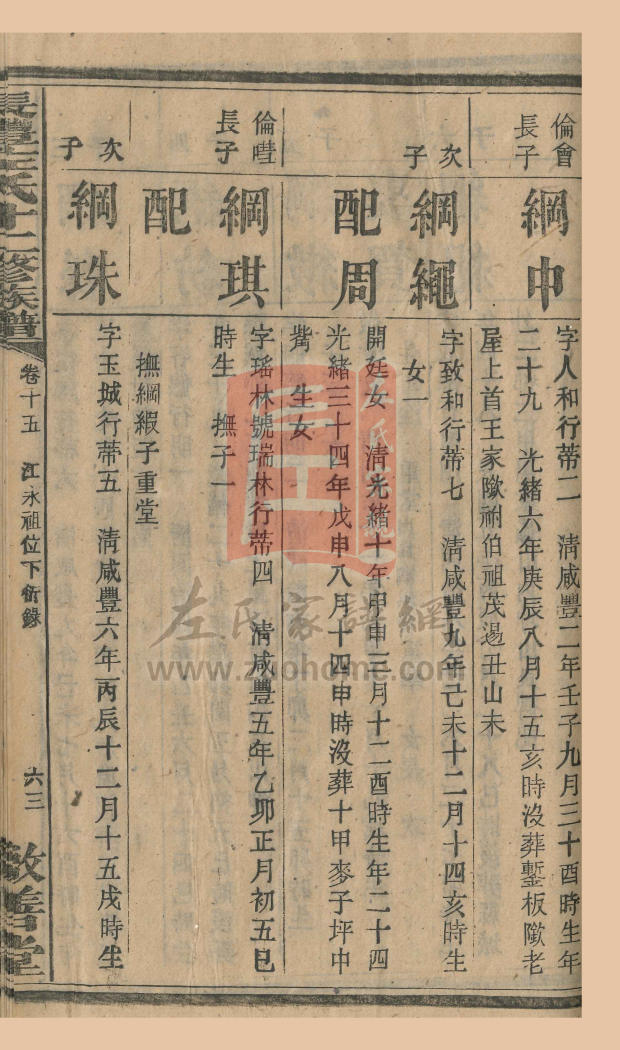 倫會
長子
綱申
字人和行蒂二 清咸豐二年壬子九月三十酉時生年
二十九 光緒六年庚辰八月十五亥時沒葬塹板歟老
屋上首王家歟祔伯祖茂逿丑山未
次
子
綱繩
字致和行蒂七 清咸豐九年己未十二月十四亥時生
女一
配周
開廷女 清光緒十年甲申三月十二酉時生年二十四
光緒三十四年戊申八月十四申時沒葬十甲麥子坪中
觜 生女
倫㫼
長子
綱琪
字瑶林號瑞林行蒂四 清咸豐五年乙卯正月初五巳
時生 撫子一
配
撫綱緞子重堂
次
子
綱珠
字玉城行蒂五 清咸豐六年丙辰十二月十五戌時生
長豐王氏十二修族譜
卷十五 江永祖位下衍錄
六三
敦善堂
左氏家譜網
www.zuohome.com